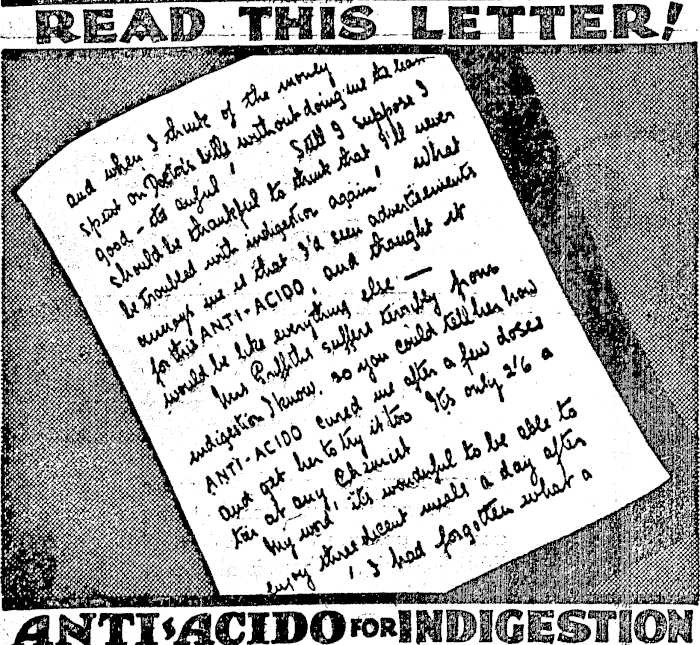 READ THIS LETTER!
and when I think of the money
spent on Doctor's bills without doing me the least
good - its awful! Still I suppose I
should be thankful to think that I'll never
be troubled with indigestion again! What
annoys me is that I'd seen advertisements
for this ANTI-ACIDO, and thought it
would be like everything else —
Mrs Griffiths suffers terribly from
indigestion I know, so you could tell her how
ANTI-ACIDO cured me after a few doses
and get her to try it too Its only 2'6 a
tin at any Chemist
My word, its wonderful to be able to
enjoy three decent meals a day after
! I had forgotten what a
ANTI-ACIDO FOR INDIGESTION